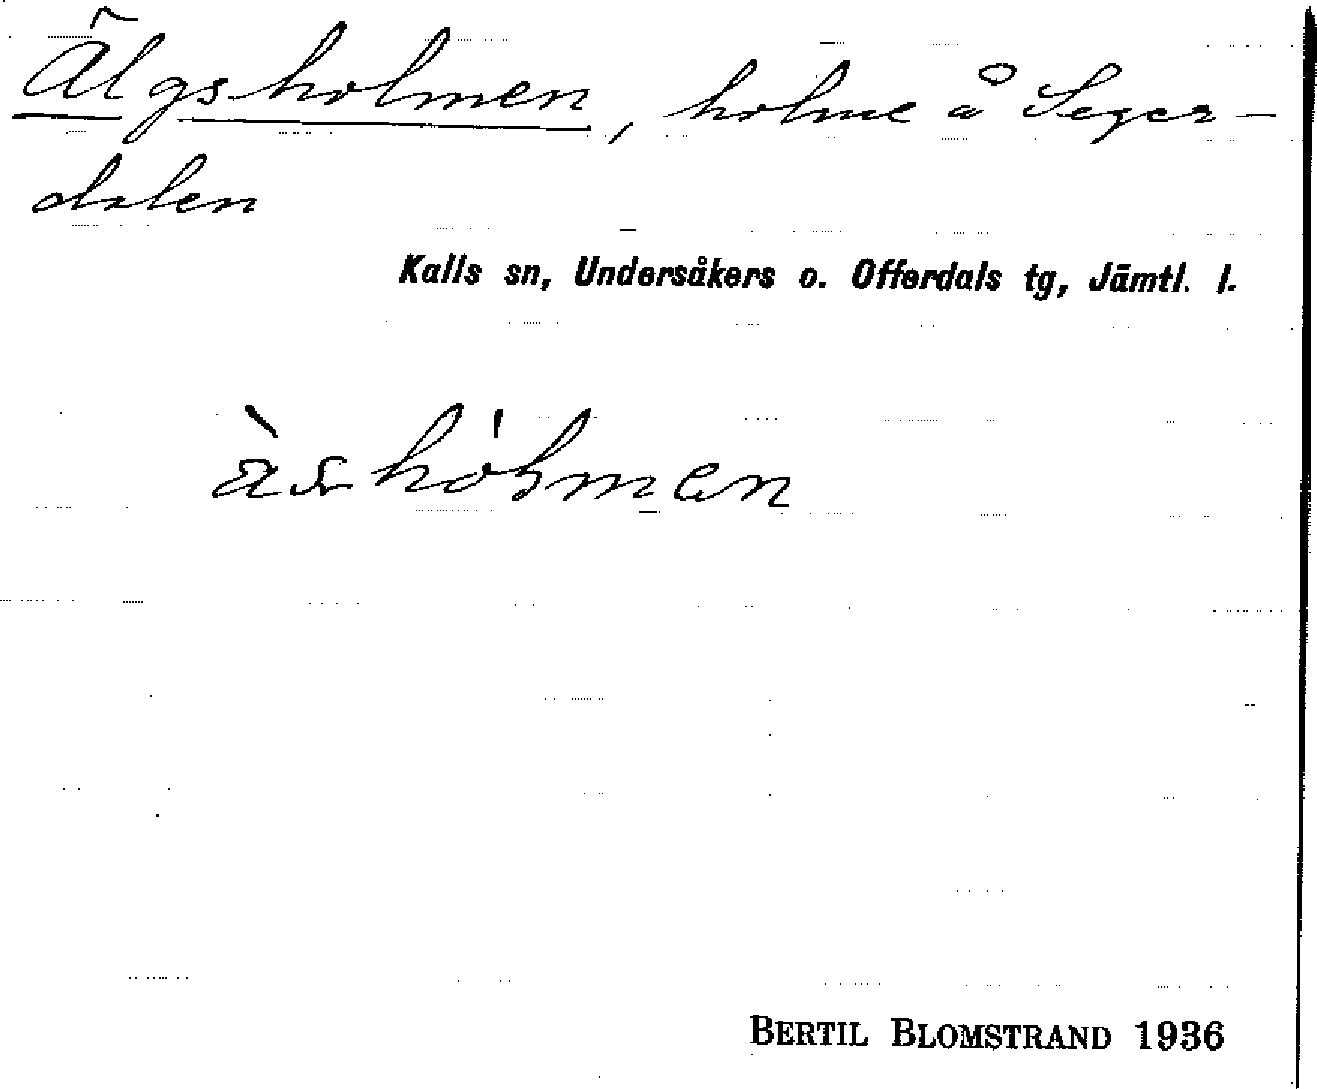 Älgsholmen, holme å Seger-
dalen
Kalls sn, Undersåkers o. Offerdals tg, Jämtl. l.
BERTIL BLOMSTRAND 1936